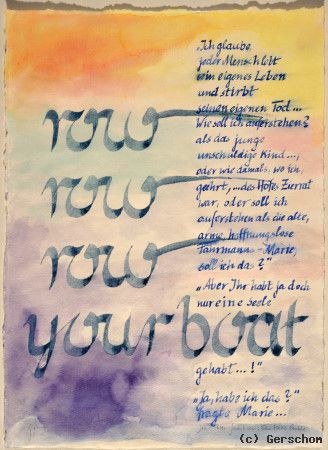 row
row
row
your boat
„Ich glaube
jeder Mensch lebt
sein eigenes Leben
und stirbt
seinen eigenen Tod...
Wie soll ich auferstehen?
als das junge
unschuldige Kind...,
oder wie damals, wo ich,
geehrt, ...des Hofes Zierrat
war, oder soll ich
auferstehen als die alte,
arme, hoffnungslose
Fährmanns-Marie
soll ich das?"
„Aber Ihr habt ja doch
nur eine Seele
gehabt...!"
„Ja, habe ich das?"
fragte Marie...
(c) Gerschom